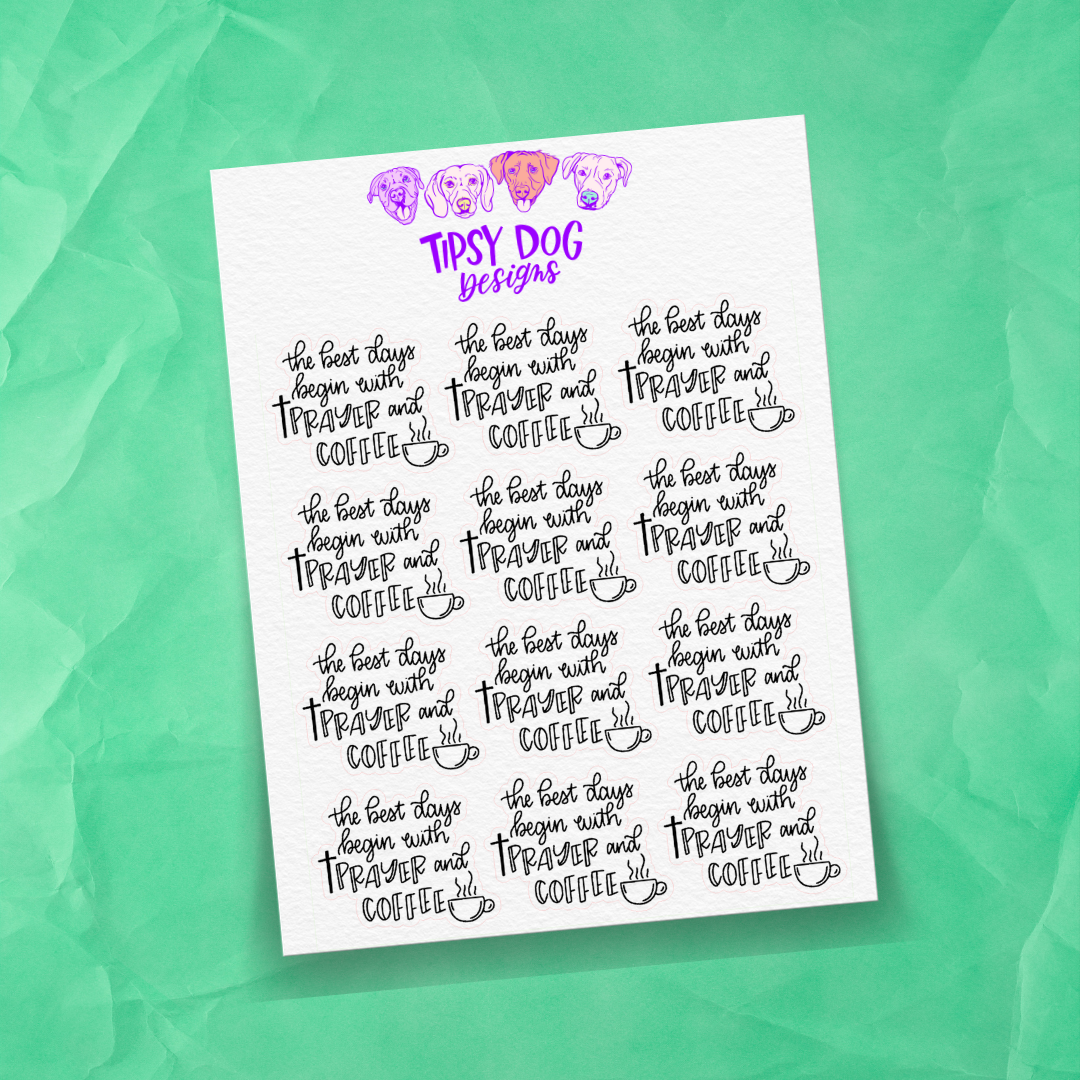 TIPSY DOG
Designs
the best days
begin with
PRAYER and
COFFEE
the best days
begin with
PRAYER and
COFFEE
the best days
begin with
PRAYER and
COFFEE
the best days
begin with
PRAYER and
COFFEE
the best days
begin with
PRAYER and
COFFEE
the best days
begin with
PRAYER and
COFFEE
the best days
begin with
PRAYER and
COFFEE
the best days
begin with
PRAYER and
COFFEE
the best days
begin with
PRAYER and
COFFEE
the best days
begin with
PRAYER and
COFFEE
the best days
begin with
PRAYER and
COFFEE
the best days
begin with
PRAYER and
COFFEE